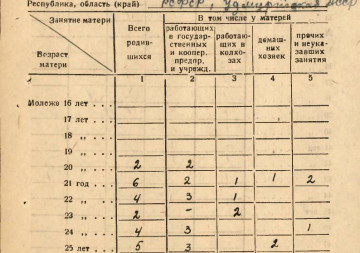 Республика, область (край) РСФСР, Удмуртская АССР
Занятие матери
Возраст матери
Всего родив-шихся
В том числе у матерей
работающих в государ-ственных и коопер. предпр. и учрежд.
работаю-щих в колхо-зах
домаш-них хозяек
прочих и неука-завших занятия
1 2 3 4 5
Моложе 16 лет . . .
17 лет . . .
18 „ . . .
19 „ . . .
20 „ . . . 2 2
21 год . . . 6 2 1 1 2
22 „ . . . 4 3 1
23 „ . . . 2 - 2
24 „ . . . 4 3 1
25 лет . . . 5 3 2